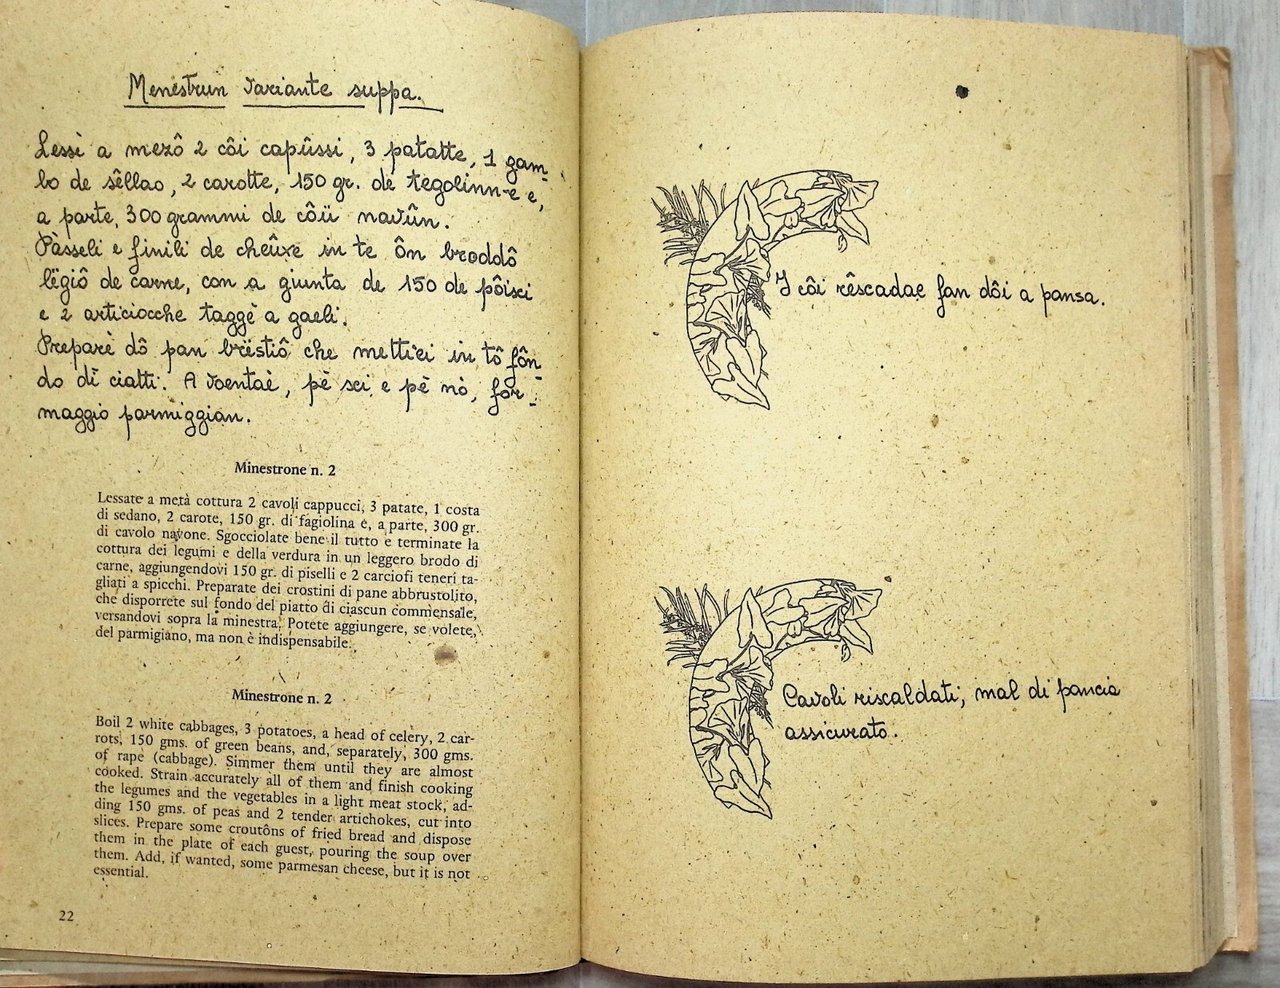 Menestrun variante suppa.
Lessì a mezô 2 côi capûssi, 3 patatte, 1 gam-
bo de sêllao, 2 carotte, 150 gr. de tegolinn-e e,
a parte, 300 grammi de côü navûn.
Pàsseli e finili de cheûxe in te ôn broddô
lëgiô de carne, con a giunta de 150 de pôisci
e 2 articiocche taggè a gaeli.
Preparè dô pan brëstiô che mettiei in tô fôn-
do di ciatti. A voentaè, pè sci e pè nò, for-
maggio parmiggian.
Minestrone n. 2
Lessate a metà cottura 2 cavoli cappucci, 3 patate, 1 costa
di sedano, 2 carote, 150 gr. di fagiolina e, a parte, 300 gr.
di cavolo navone. Sgocciolate bene il tutto e terminate la
cottura dei legumi e della verdura in un leggero brodo di
carne, aggiungendovi 150 gr. di piselli e 2 carciofi teneri ta-
gliati a spicchi. Preparate dei crostini di pane abbrustolito,
che disporrete sul fondo del piatto di ciascun commensale,
versandovi sopra la minestra. Potete aggiungere, se volete,
del parmigiano, ma non è indispensabile.
Minestrone n. 2
Boil 2 white cabbages, 3 potatoes, a head of celery, 2 car-
rots, 150 gms. of green beans, and, separately, 300 gms.
of rape (cabbage). Simmer them until they are almost
cooked. Strain accurately all of them and finish cooking
the legumes and the vegetables in a light meat stock, ad-
ding 150 gms. of peas and 2 tender artichokes, cut into
slices. Prepare some croutôns of fried bread and dispose
them in the plate of each guest, pouring the soup over
them. Add, if wanted, some parmesan cheese, but it is not
essential.
22
I côi rêscadae fan dôi a pansa.
Cavoli riscaldati; mal di pancia
assicurato.